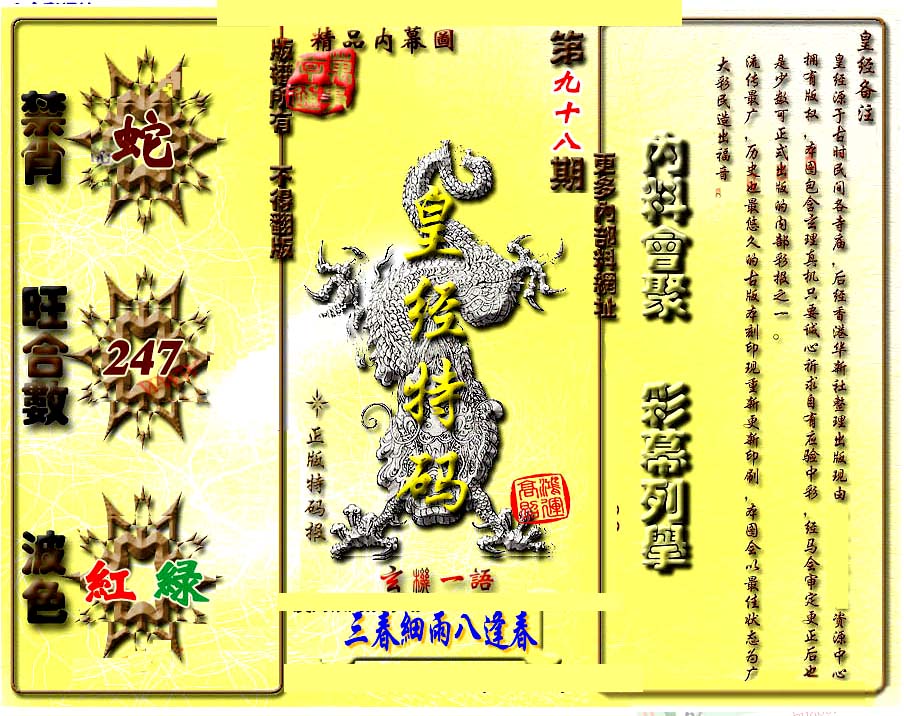 精品内幕圖
第九十八期
版權所有 不得翻版
更多内部料網址
禁肖
蛇
旺合數
247
波色
紅 綠
皇经特码
正版特码报
鴻運高照
玄機一語
三春細雨八逢春
内料會聚
彩幕列舉
皇经备注
皇经源于古时民间各寺庙，后经香港华新社整理出版现由
资源中心
拥有版权，本图包含玄理真机只要诚心祈求自有应验中彩，经马会审定更正后也
是少数可正式出版的内部彩报之一。
流传最广，历史也最悠久的古版本刻印现重新更新印刷，本图会以最佳状态为广
大彩民造出福音。